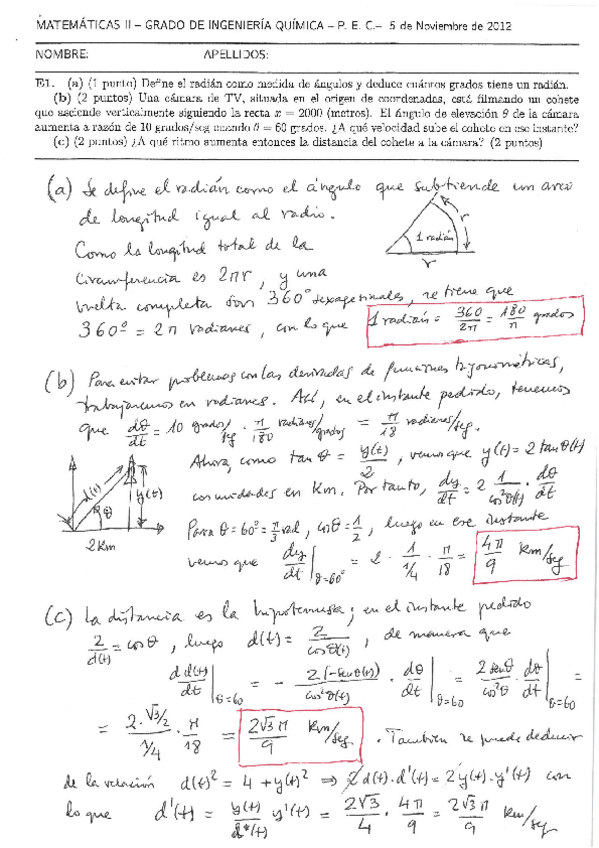 MATEMÁTICAS II – GRADO DE INGENIERÍA QUÍMICA – P. E. C.– 5 de Noviembre de 2012
NOMBRE: APELLIDOS:
E1. (a) (1 punto) Define el radián como medida de ángulos y deduce cuántos grados tiene un radián.
(b) (2 puntos) Una cámara de TV, situada en el origen de coordenadas, está filmando un cohete
que asciende verticalmente siguiendo la recta x = 2000 (metros). El ángulo de elevación θ de la cámara
aumenta a razón de 10 grados/seg cuando θ = 60 grados. ¿A qué velocidad sube el cohete en ese instante?
(c) (2 puntos) ¿A qué ritmo aumenta entonces la distancia del cohete a la cámara? (2 puntos)
(a) Se define el radián como el ángulo que subtiende un arco
de longitud igual al radio.
1 radián r r
Como la longitud total de la
circunferencia es 2πr, y una
vuelta completa son 360° sexagesimales, se tiene que
360° = 2π radianes, con lo que 1 radián = 360/2π = 180/π grados
(b) Para evitar problemas con las derivadas de funciones trigonométricas,
trabajaremos en radianes. Así, en el instante pedido, tenemos
que dθ/dt = 10 grados/seg · π/180 radianes/grados = π/18 radianes/seg.
Ahora, como tan θ = y(t)/2, vemos que y(t) = 2 tan θ(t)
con unidades en Km. Por tanto, dy/dt = 2 1/cos²θ(t) · dθ/dt
d(t) y(t) θ 2 Km
Para θ = 60° = π/3 rad, cos θ = 1/2, luego en ese instante
vemos que dy/dt|θ=60° = 2 · 1/1/4 · π/18 = 4π/9 Km/seg
(c) La distancia es la hipotenusa; en el instante pedido
2/d(t) = cos θ, luego d(t) = 2/cos θ(t), de manera que
d d(t)/dt|θ=60 = - 2(-sen θ(t))/cos²θ(t) · dθ/dt|θ=60 = 2 sen θ/cos²θ · dθ/dt|θ=60 =
= 2·√3/2/1/4 · π/18 = 2√3 π/9 Km/seg. También se puede deducir
de la relación d(t)² = 4 + y(t)² ⇒ 2 d(t)·d'(t) = 2 y(t)·y'(t) con
lo que d'(t) = y(t)/d(t) y'(t) = 2√3/4 · 4π/9 = 2√3 π/9 Km/seg